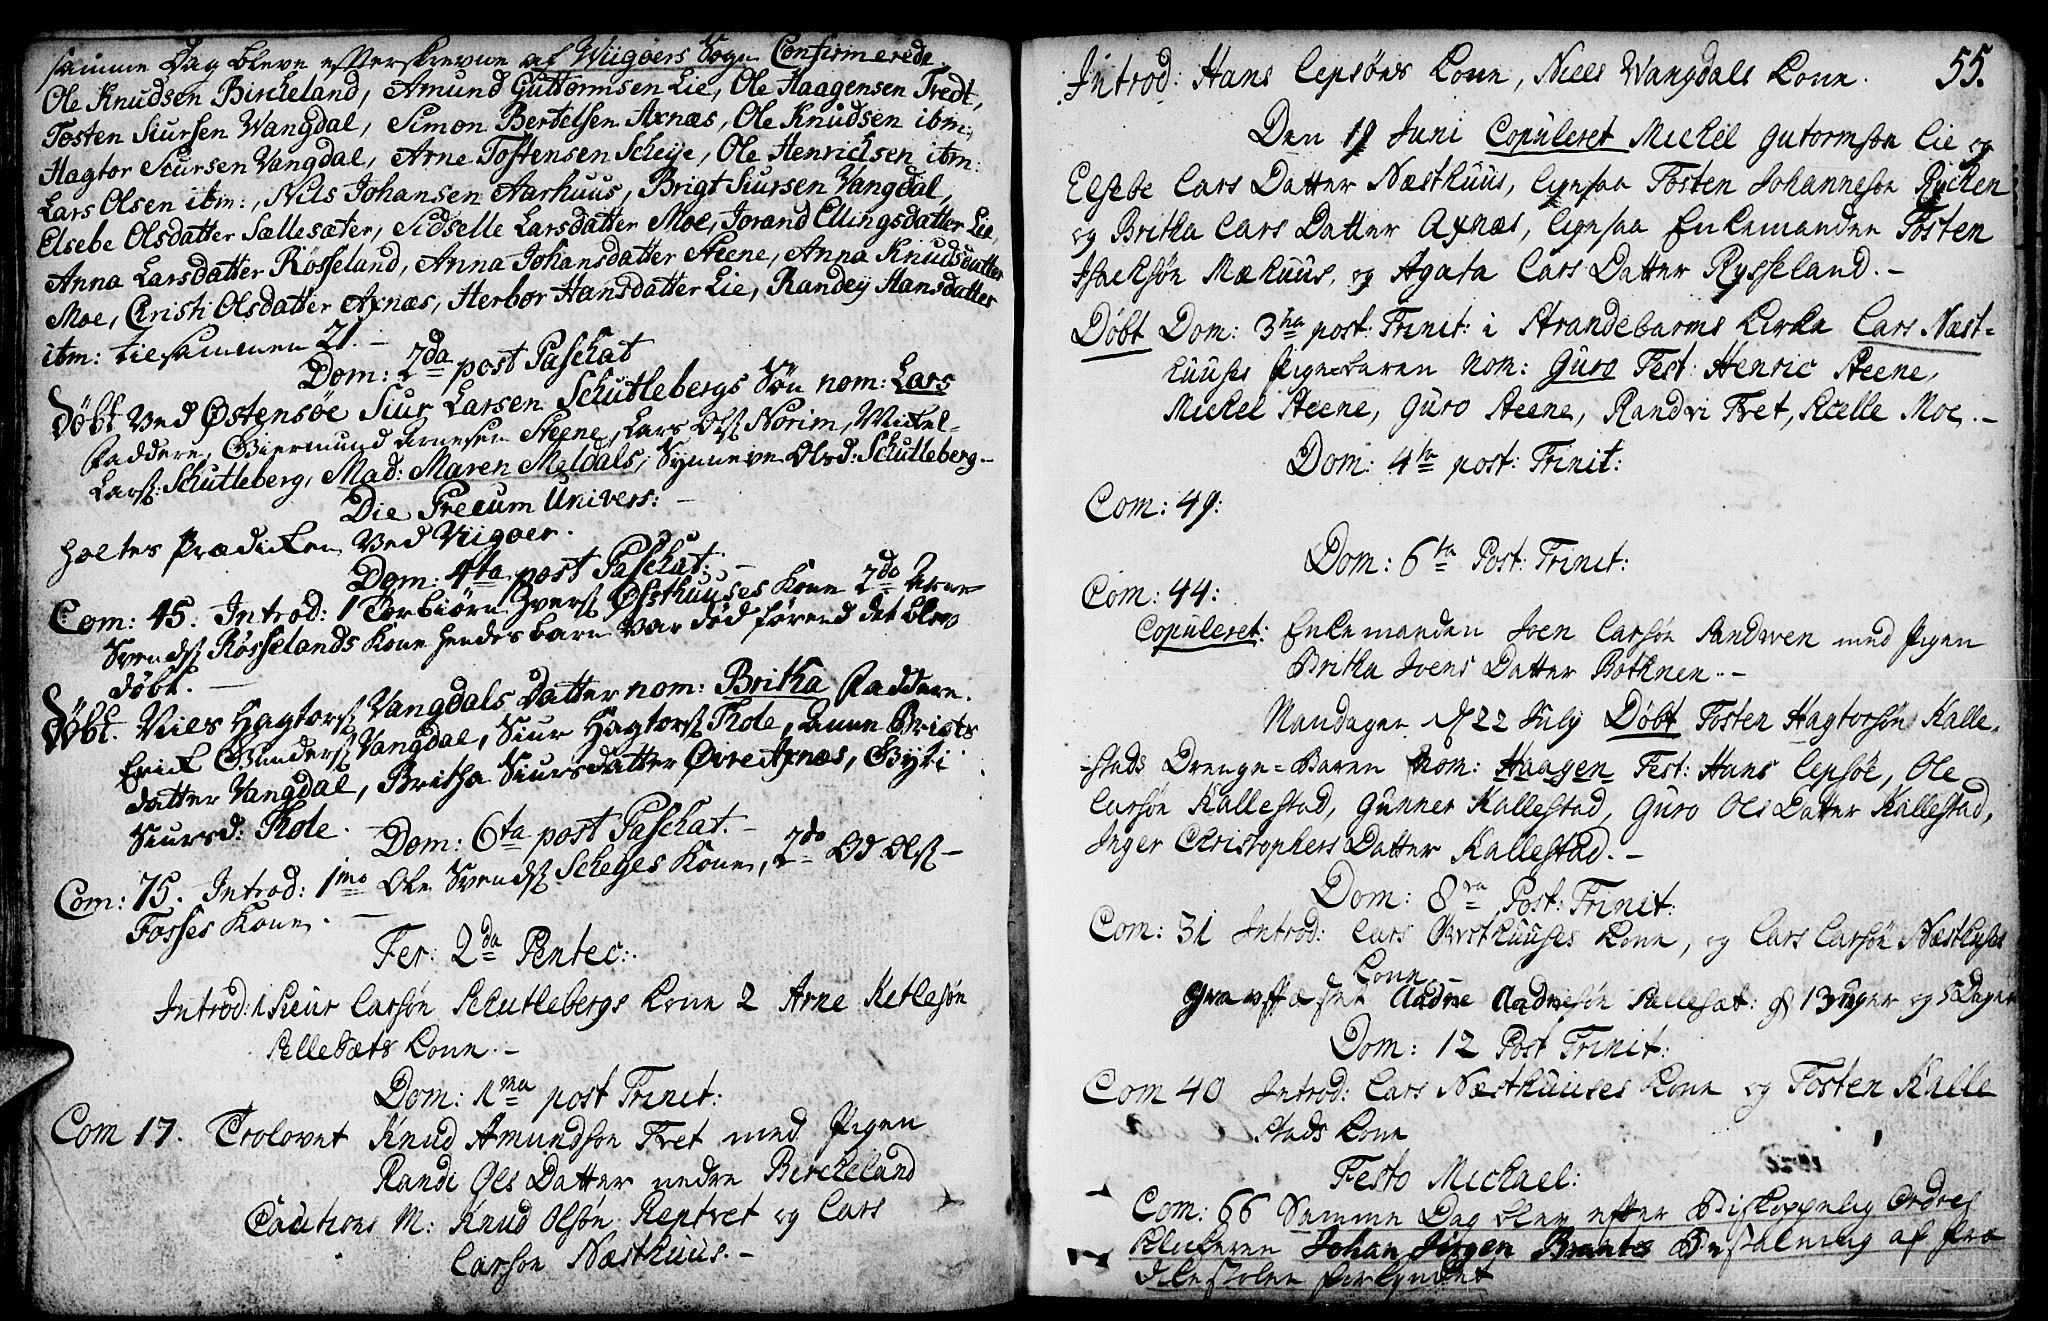 samme Dag bleve efterskrevne af Wiigøers Sogn Confirmerede.
Ole Knudsen Birckeland, Amund Guttormsen Lie, Ole Haagensen Tredt,
Tosten Siursen Wangdal, Simon Bertelsen Axnæs, Ole Knudsen ibm:,
Hagtor Siursen Vangdal, Arne Tostensen Scheije, Ole Henrichsen ibm:
Lars Olsen ibm:, Nils Johansen Aarhuus, Brigt Siursen Vangdal,
Elsebe Olsdatter Sællesæter, Sidselle Larsdatter Moe, Jorand Ellingsdatter Lie,
Anna Larsdatter Røsseland, Anna Johansdatter Steene, Anna Knudsdatter
Moe, Christi Olsdatter Axnæs, Herbor Hansdatter Lie, Randey Hansdatter
ibm: tilsammen 21. –
Dom: 2da post Paschat
Døbt ved Østensøe Siur Larsen Schutlebergs Søn nom: Lars
Faddere, Giermund Arnesen Steene, Lars Ols: Norim, Mikel
Lars: Schutleberg, Mad: Maren Meldals, Synneve Olsd: Schutleberg. –
Die Precum Univers: –
holtes Prædicken ved Viigøer.
Dom: 4ta post Paschat: –
Com: 45. Introd: 1 Torbiørn Ivers: Østhuuses Kone 2do Arne
Svends: Røsselands Kone hendes barn var død førend det blev
døbt. –
Døbt. Niels Hagtors: Vangdals Datter nom: Britha Faddere.
Erick Gunders: Vangdal, Siur Hagtors: Thole, Anne Brigts
datter Vangdal, Britha Siursdatter Øvre Axnæs, Gyti
Siursd: Thole.
Dom: 6ta post Paschat. –
Com: 75. Introd: 1mo Ole Svends: Scheges Kone, 2do Od Ols: –
Fosses Kone. –
Fer: 2da Pentec:.
Introd: 1 Siur Larsøn Schutlebergs Kone 2 Arne Ketlesøn
Sellesæts Kone. –
Dom: 1ma post Trinit:
Com 17. Trolovet Knud Amundsøn Tret med Pigen
Randi Ols Datter nedre Berckeland
Cautions M: Knud Olsøn Reptvet og Lars
Larsøn Næsthuus. –
55.
Introd: Hans Lepsøes Kone, Niels Wangdals Kone.
Den 19 Juni Copuleret Mickel Gutormsøn Lie og
Elsebe Lars Datter Næsthuus, ligesaa Tosten Johannesøn Rycken
og Britha Lars Datter Axnæs, ligesaa Enkemanden Tosten
Isacksøn Mæhuus, og Agata Lars Datter Rysseland. –
Døbt Dom: 3tia post: Trinit: i Strandebarms Kirke Lars Næst-
huuses Pigebaren nom: Guro Test: Henric Steene,
Mickel Steene, Guro Steene, Randvi Tret, Moe. –
Dom: 4ta post: Trinit:
Com: 49:
Dom: 6ta Post: Trinit:
Com: 44:
Copuleret: Enkemanden Iven Larsøn Sandven med Pigen
Britha Ivens Datter Bothnen. –
Mandagen d 22 July Døbt Tosten Hagtorsøn Kalle-
-stads Drenge-Baren Nom: Haagen Test: Hans Lepsøe, Ole
Larsøn Kallestad, Gunner Kallestad, Guro Ols Datter Kallestad,
Inger Christophers Datter Kallestad. –
Dom: 8va Post: Trinit:
Com: 31 Introd: Lars Østhuuses Kone, og Lars Larsøn Næsthuses
Kone –
Gravfæstet Aadne Aadnesøn Sallesæt: 13 uger og 5 Dager
Dom: 12 Post Trinit:
Com 40 Introd: Lars Næsthuuses Kone og Tosten Kalle
stads Kone
Festo Michael:
Com: 66 Samme Dag blev efter Biskoppelig Ordres
Klockeren Johan Jørgen Brantes Bestalning af Præ
dikestolen forkyndet